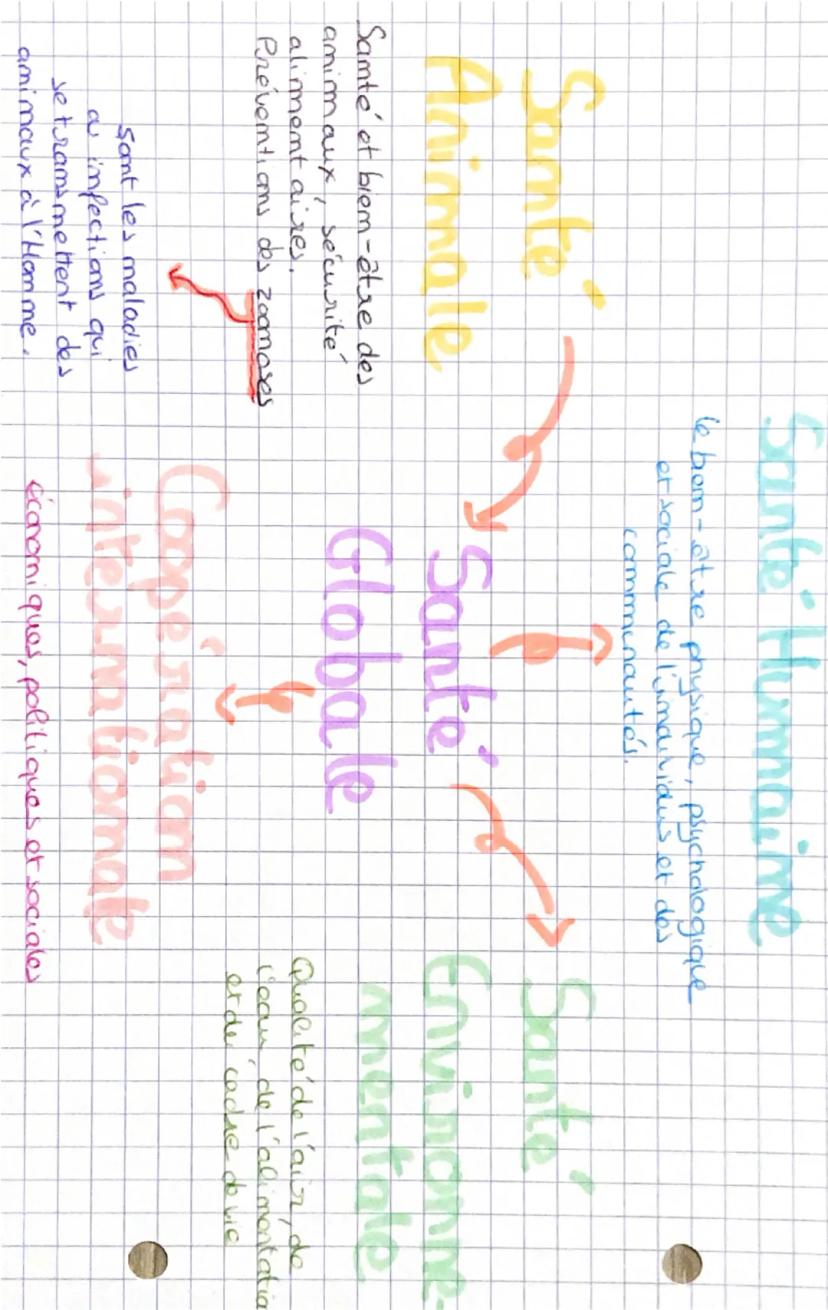 Santé Humaine
le bien-être physique, psychologique
et sociale de l'individus et des
communautés.
Santé
Animale
Santé et bien-être des
animaux, sécurité
alimentaires.
Préventions des zoonoses
sont les maladies
ou infections qui
se transmettent des
animaux à l'Homme.
Santé
Globale
Santé
Environne-
mentale
Qualité de l'air, de
l'eau, de l'alimentatio
et du cadre de vie
Coopération
internationale
économiques, politiques et sociales